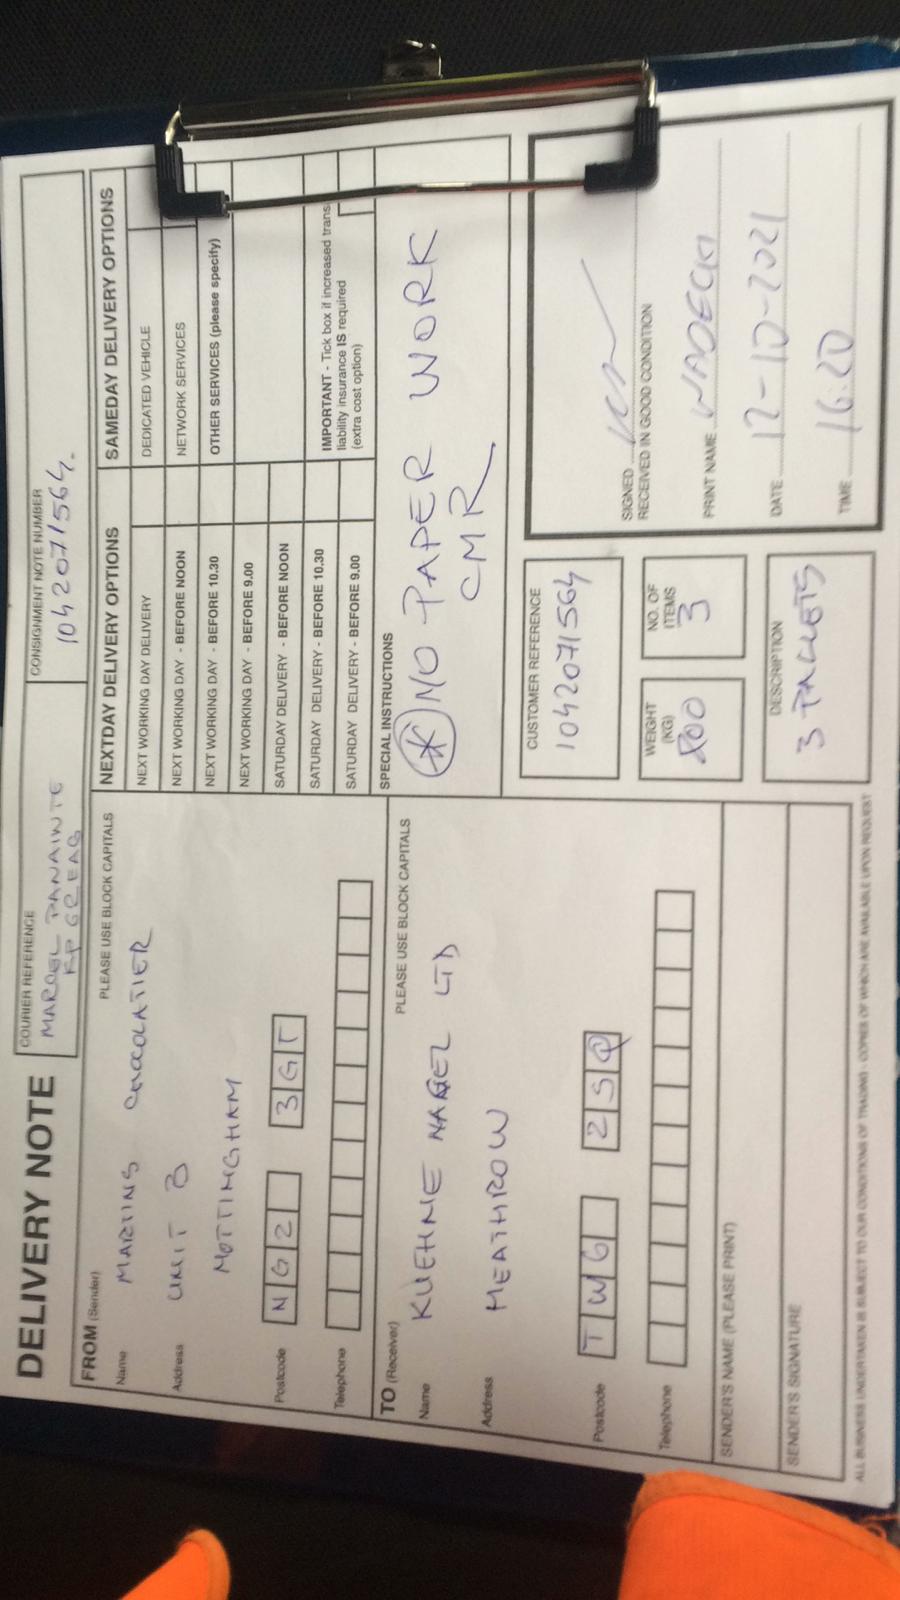 DELIVERY NOTE
COURIER REFERENCE
MARCEL PANAINTE
CONSIGNMENT NOTE NUMBER
1042071564.
FROM (Sender)
PLEASE USE BLOCK CAPITALS
Name
MARTINS CHOCOLATIER
Address
UNIT B
NOTTINGHAM
Postcode
NG2 3GT
Telephone
TO (Receiver)
PLEASE USE BLOCK CAPITALS
Name
KUEHNE NAGEL LTD
Address
HEATHROW
Postcode
TW6 2SQ
Telephone
SENDER'S NAME (PLEASE PRINT)
SENDER'S SIGNATURE
NEXTDAY DELIVERY OPTIONS
NEXT WORKING DAY DELIVERY
NEXT WORKING DAY - BEFORE NOON
NEXT WORKING DAY - BEFORE 10.30
NEXT WORKING DAY - BEFORE 9.00
SATURDAY DELIVERY - BEFORE NOON
SATURDAY DELIVERY - BEFORE 10.30
SATURDAY DELIVERY - BEFORE 9.00
SAMEDAY DELIVERY OPTIONS
DEDICATED VEHICLE
NETWORK SERVICES
OTHER SERVICES (please specify)
IMPORTANT - Tick box if increased trans
liability insurance IS required
(extra cost option)
SPECIAL INSTRUCTIONS
* NO PAPER WORK
CMR
CUSTOMER REFERENCE
1042071564
WEIGHT (KG)
800
NO. OF ITEMS
3
DESCRIPTION
3 PALLETS
SIGNED
RECEIVED IN GOOD CONDITION
PRINT NAME
DATE 12-10-2021
TIME 16:20
ALL BUSINESS UNDERTAKEN IS SUBJECT TO OUR CONDITIONS OF TRADING - COPIES OF WHICH ARE AVAILABLE UPON REQUEST